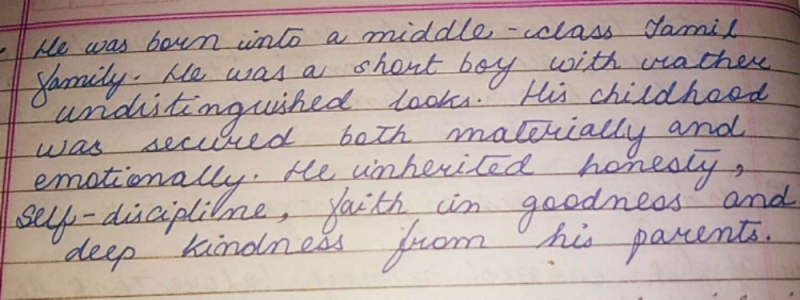 He was born into a middle-class Tamil
family. He was a short boy with rather
undistinguished looks. His childhood
was secured both materially and
emotionally. He inherited honesty,
self-discipline, faith in goodness and
deep kindness from his parents.